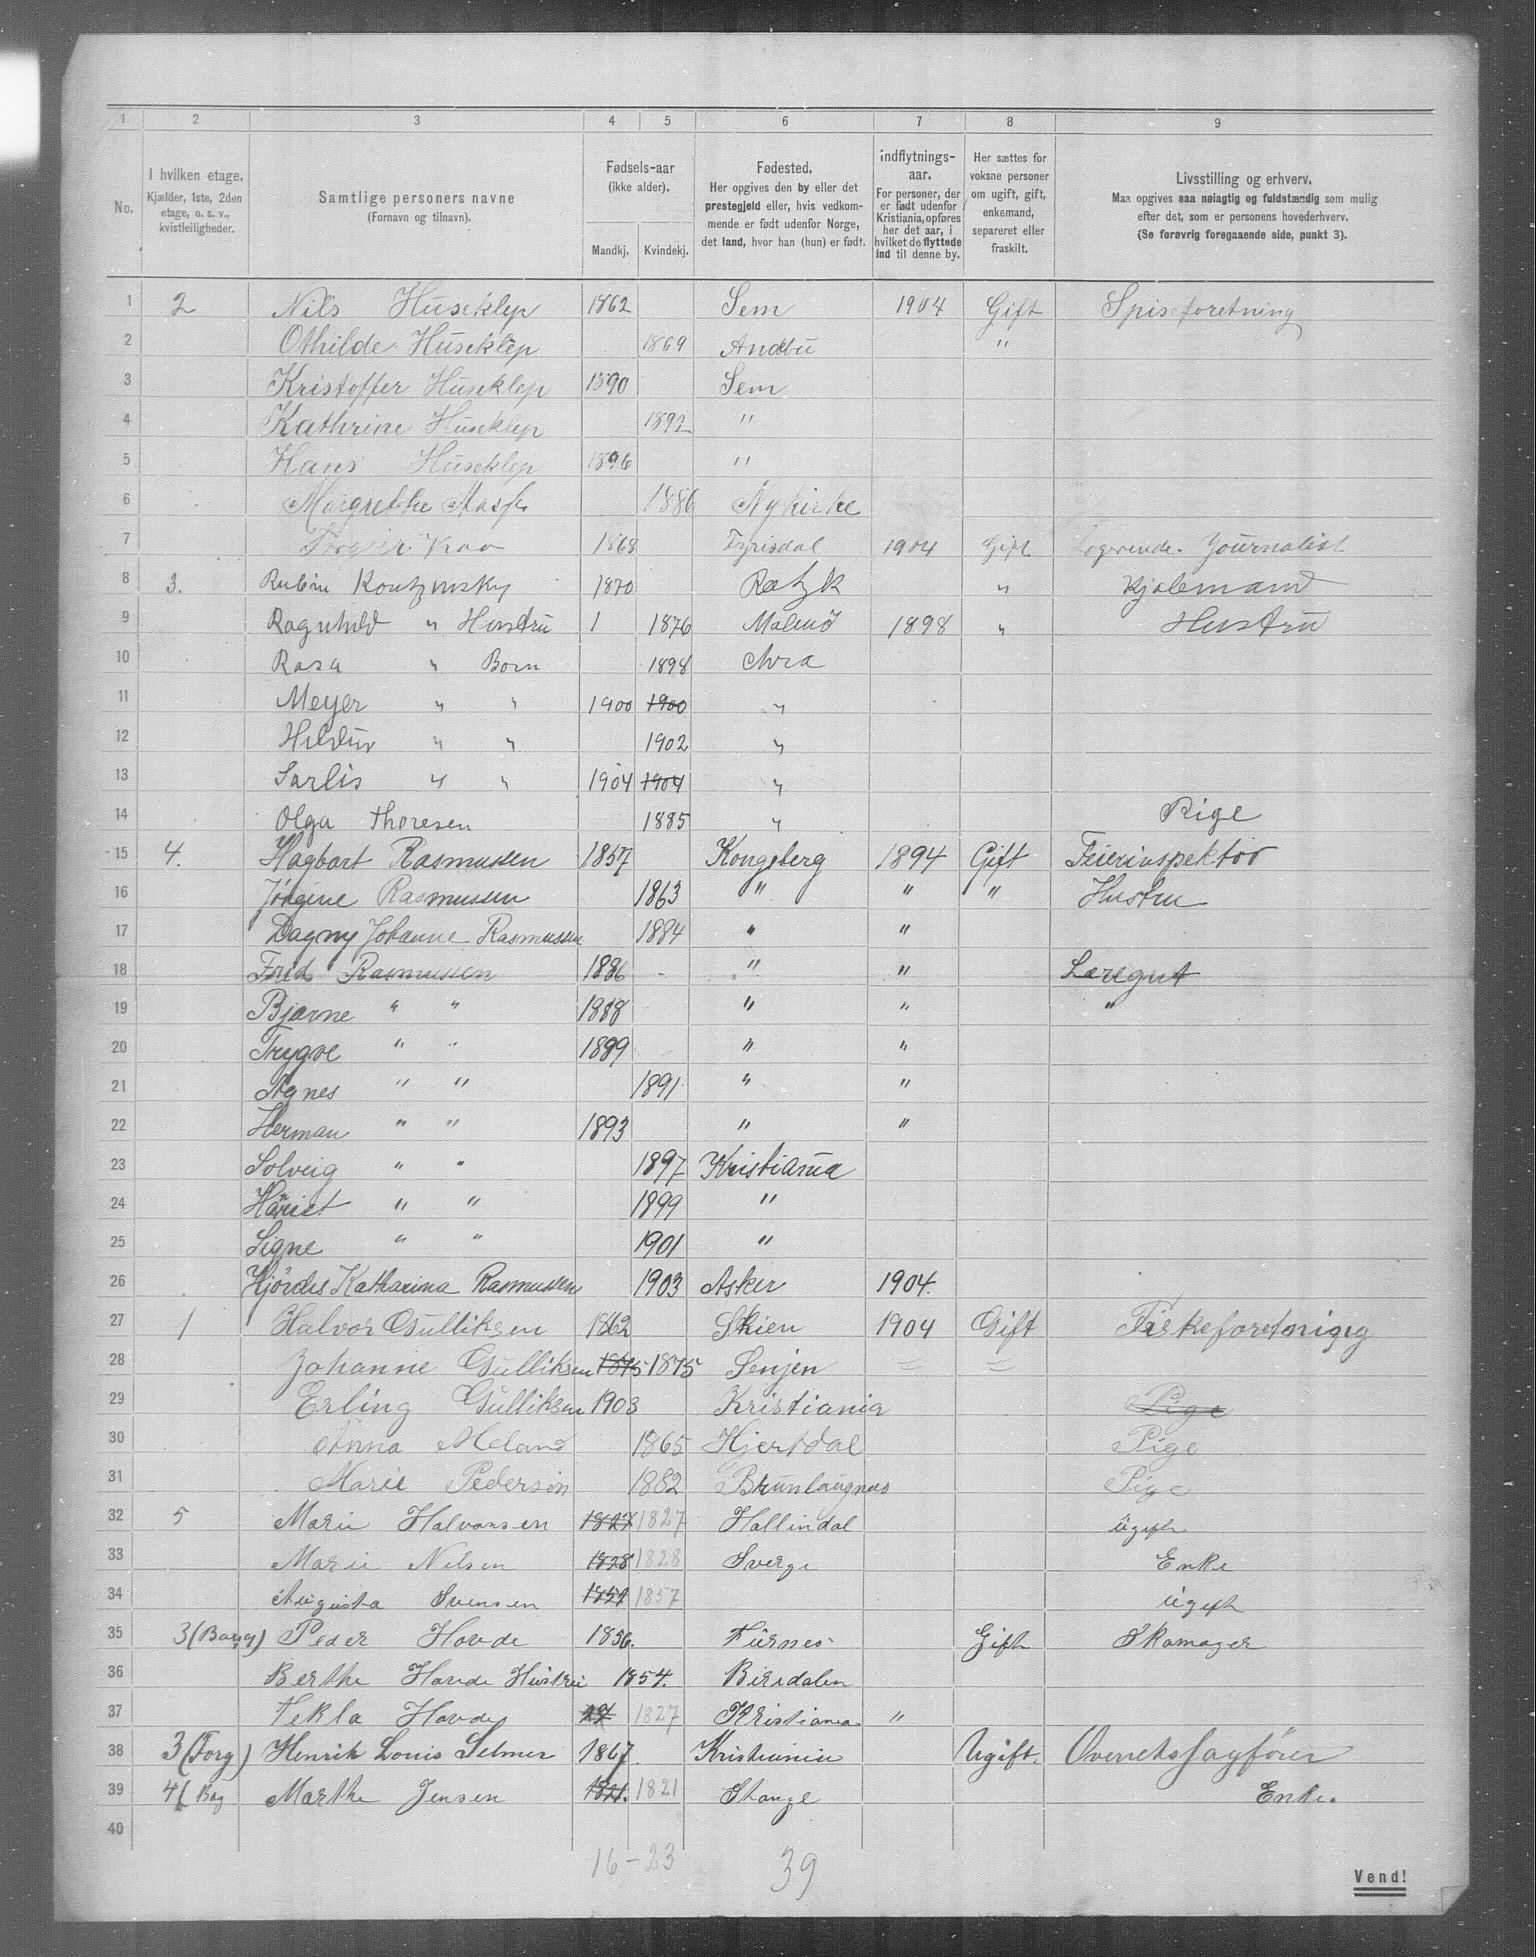 1 2 3 4 5 6 7 8 9
No. I hvilken etage. Kjælder, 1ste, 2den etage, o. s. v., kvistleiligheder. Samtlige personers navne (Fornavn og tilnavn). Fødsels-aar (ikke alder). Mandkj. Kvindekj. Fødested. Her opgives den by eller det prestegjeld eller, hvis vedkommende er født udenfor Norge, det land, hvor han (hun) er født. Indflytnings-aar. For personer, der er født udenfor Kristiania, opføres her det aar, i hvilket de flyttede ind til denne by. Her sættes for voksne personer om ugift, gift, enkemand, separeret eller fraskilt. Livsstilling og erhverv. Maa opgives saa nøiagtig og fuldstændig som mulig efter det, som er personens hovederhverv. (Se forøvrig foregaaende side, punkt 3).
1 2 Nils Huseklep 1862 Sem 1904 Gift Spiseforetning
2 Othilde Huseklep 1869 Andbu "
3 Kristoffer Huseklep 1890 Sem
4 Kathrine Huseklep 1892 "
5 Hans Huseklep 1896 "
6 Margrethe 1886 Nykirke
7 1868 Fyrisdal 1904 Gift Logerende. Journalist
8 3. Rubin Koutzinsky 1870 " Kjølemand
9 Ragnhild " Hustru 1 1876 Malmö 1898 " Hustru
10 Rosa " Born 1898
11 Meyer " " 1900 1900 "
12 Hildur " " 1902 "
13 Sarlis " " 1904 1904 "
14 Olga Thoresen 1885 " Pige
15 4. Hagbart Rasmussen 1857 Kongsberg 1894 Gift Feierinspektør
16 Jørgine Rasmussen 1863 " " " Hustru
17 Dagny Johanne Rasmussen 1884 " "
18 Fred Rasmussen 1886 - " " Læregut
19 Bjarne " " 1888 " " "
20 Trygve " " 1889 " "
21 Agnes " " 1891 " "
22 Herman " " 1893 " "
23 Solveig " " 1897 Kristiania
24 Hariet " " 1899 "
25 Signe " " 1901 "
26 Hjørdis Katharina Rasmussen 1903 Asker 1904.
27 1 Halvor Gulliksen 1862 Skien 1904 Gift Fiskeforetning
28 Johanne Gulliksen 1875 1875 Senjen = =
29 Erling Gulliksen 1903 Kristiania Pige
30 Anna Meland 1865 Hjertdal Pige
31 Marie Pedersen 1882 Brunlaugnes Pige
32 5 Marie Halvorsen 1827 1827 Hallindal ugift
33 Marie Nilsen 1828 1828 Sverge Enke
34 Augusta Svensen 1857 1857 ugift
35 3 (Bagg) Peder Hovde 1856. Furnes Gift Skomager
36 Berthe Hovde Hustru 1854. Biridalen
37 Tekla Hovde 27 1827 Kristiania "
38 3 (Forg) Henrik Louis Selmer 1867. Kristiania Ugift. Overretssagfører
39 4 (Bag Marthe Jensen 1821. 1821 Stange Enke.
40
16-23 39
Vend!